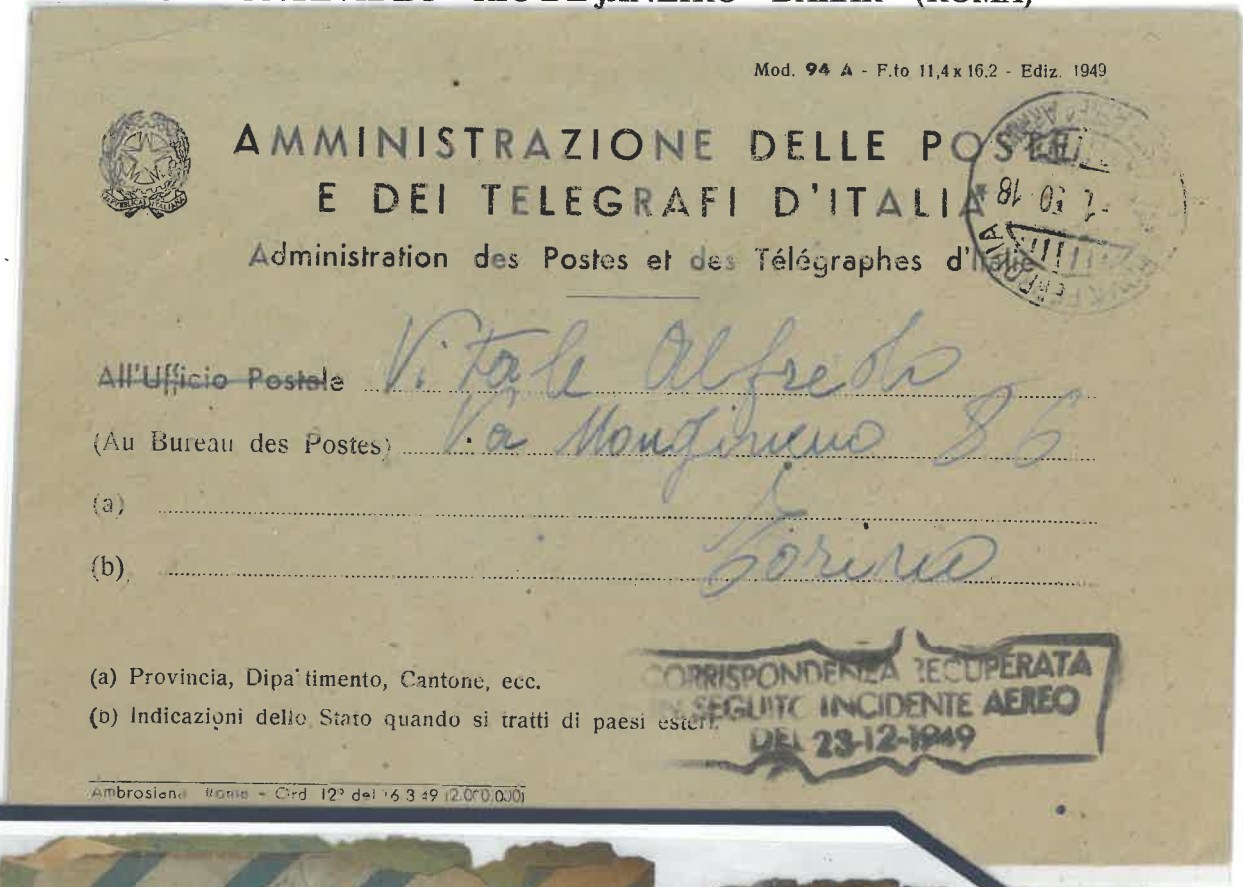 RIO DE JANEIRO - BAHIA - (ROMA)
Mod. 94 A - F.to 11,4 x 16,2 - Ediz. 1949
AMMINISTRAZIONE DELLE POSTE
E DEI TELEGRAFI D'ITALIA
Administration des Postes et des Télégraphes d'Italie
All'Ufficio Postale Vitale Alfredo
(Au Bureau des Postes) Via 86
(a)
(b) Torino
(a) Provincia, Dipartimento, Cantone, ecc.
(b) Indicazioni dello Stato quando si tratti di paesi esteri.
CORRISPONDENZA RECUPERATA
IN SEGUITO INCIDENTE AEREO
DEL 23-12-1949
Ambrosiana Roma - Ord 12° del 16 3 49 (2.000.000)